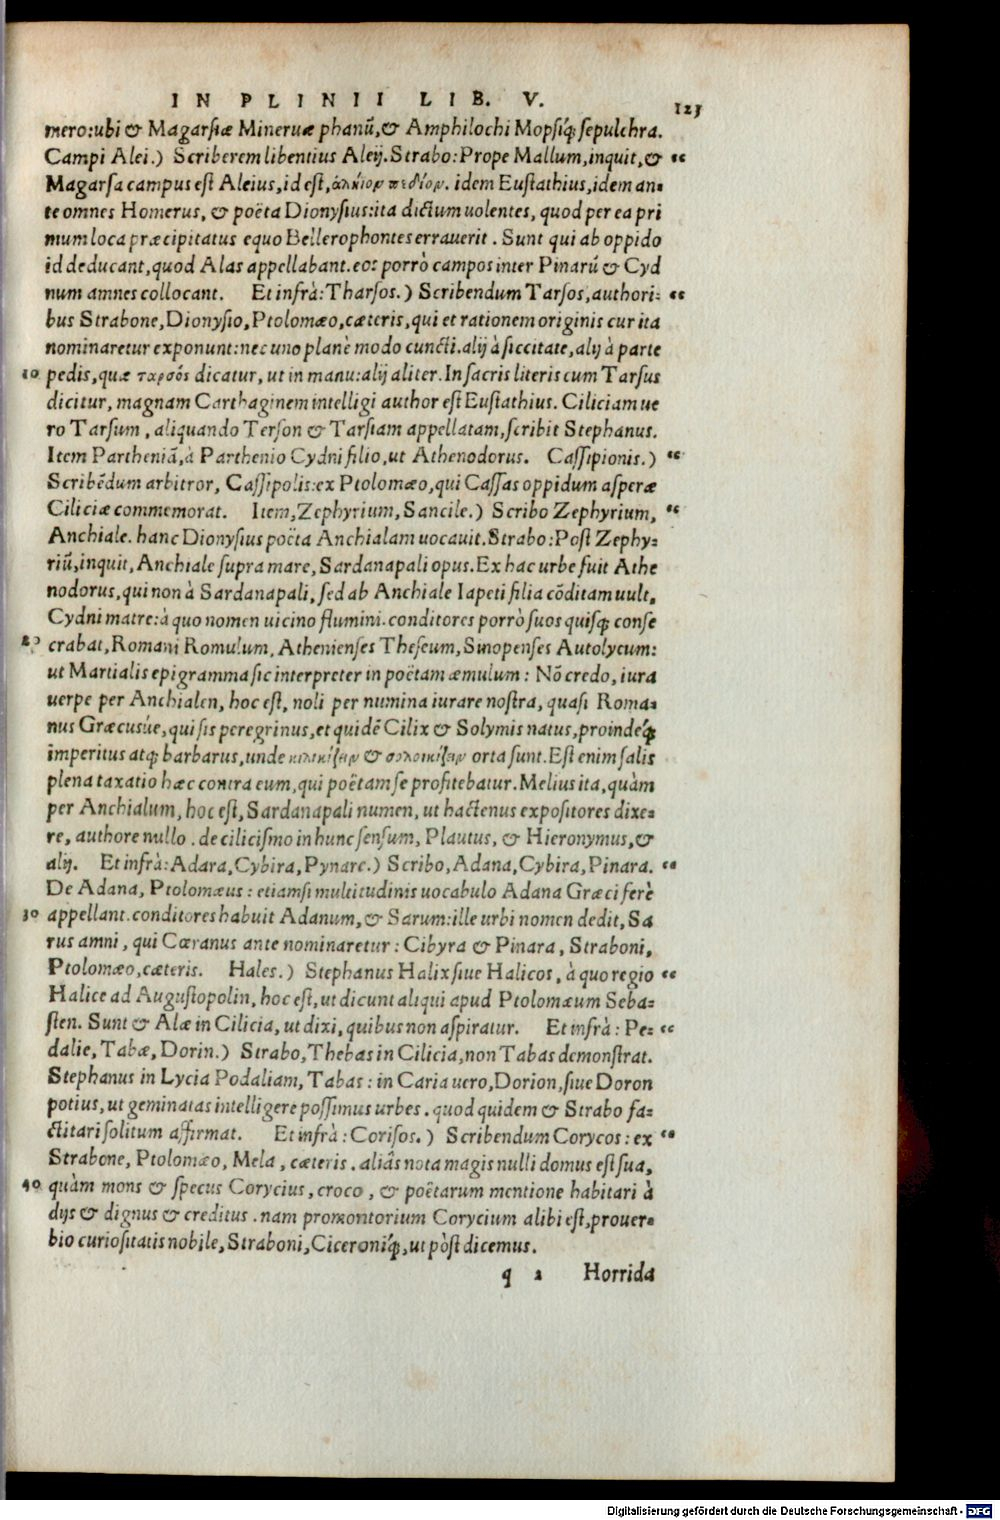 IN PLINII LIB. V. 123
mero: ubi & Magarsiæ Mineruæ phanũ, & Amphilochi Mopsiq́; sepulchra.
Campi Alei.) Scriberem libentius Aleij. Strabo: Prope Mallum, inquit, & “
Magarsa campus est Aleius, id est, ἀλήϊον πεδίον. idem Eustathius, idem an=
te omnes Homerus, & poëta Dionysius: ita dictum uolentes, quod per ea pri
mum loca præcipitatus equo Bellerophontes errauerit. Sunt qui ab oppido
id deducant, quod Alas appellabant. eos porrò campos inter Pinarũ & Cyd
num amnes collocant. Et infrà: Tharsos.) Scribendum Tarsos, authori= “
bus Strabone, Dionysio, Ptolomæo, cæteris, qui et rationem originis cur ita
nominaretur exponunt: nec uno planè modo cuncti. alij à siccitate, alij à parte
10 pedis, quæ ταρσός dicatur, ut in manu: alij aliter. In sacris literis cum Tarsus
dicitur, magnam Carthaginem intelligi author est Eustathius. Ciliciam ue
ro Tarsum, aliquando Terson & Tarsiam appellatam, scribit Stephanus.
Item Partheniã, à Parthenio Cydni filio, ut Athenodorus. Cassipionis.) “
Scribẽdum arbitror, Cassipolis: ex Ptolomæo, qui Cassas oppidum asperæ
Ciliciæ commemorat. Item, Zephyrium, Sancile.) Scribo Zephyrium, “
Anchiale. hanc Dionysius poëta Anchialam uocauit. Strabo: Post Zephy=
riũ, inquit, Anchiale supra mare, Sardanapali opus. Ex hac urbe fuit Athe
nodorus, qui non à Sardanapali, sed ab Anchiale Iapeti filia cõditam uult,
Cydni matre: à quo nomen uicino flumini. conditores porrò suos quisq; conse
20 crabat, Romani Romulum, Athenienses Theseum, Sinopenses Autolycum:
ut Martialis epigramma sic interpreter in poëtam æmulum: Nõ credo, iura
uerpe per Anchialen, hoc est, noli per numina iurare nostra, quasi Roma=
nus Græcusúe, qui sis peregrinus, et quidẽ Cilix & Solymis natus, proindeq́;
imperitus atq; barbarus, unde κιλικίζειν & σολοικίζειν orta sunt. Est enim salis
plena taxatio hæc contra eum, qui poëtam se profitebatur. Melius ita, quàm
per Anchialum, hoc est, Sardanapali numen, ut hactenus expositores dixe=
re, authore nullo. de cilicismo in hunc sensum, Plautus, & Hieronymus, &
alij. Et infrà: Adara, Cybira, Pynare.) Scribo, Adana, Cybira, Pinara. “
De Adana, Ptolomæus: etiamsi multitudinis uocabulo Adana Græci ferè
30 appellant. conditores habuit Adanum, & Sarum: ille urbi nomen dedit, Sa
rus amni, qui Cœranus ante nominaretur: Cibyra & Pinara, Straboni,
Ptolomæo, cæteris. Hales.) Stephanus Halix siue Halicos, à quo regio “
Halice ad Augustopolin, hoc est, ut dicunt aliqui apud Ptolomæum Seba=
sten. Sunt & Alæ in Cilicia, ut dixi, quibus non aspiratur. Et infrà: Pe= “
dalie, Tabæ, Dorin.) Strabo, Thebas in Cilicia, non Tabas demonstrat.
Stephanus in Lycia Podaliam, Tabas: in Caria uero, Dorion, siue Doron
potius, ut geminatas intelligere possimus urbes. quod quidem & Strabo fa=
ctitari solitum affirmat. Et infrà: Corisos.) Scribendum Corycos: ex “
Strabone, Ptolomæo, Mela, cæteris. aliâs nota magis nulli domus est sua,
40 quàm mons & specus Corycius, croco, & poëtarum mentione habitari à
dijs & dignus & creditus. nam promontorium Corycium alibi est, prouer=
bio curiositatis nobile, Straboni, Ciceroniq́;, ut pòst dicemus.
q 2 Horrida
Digitalisierung gefördert durch die Deutsche Forschungsgemeinschaft - DFG